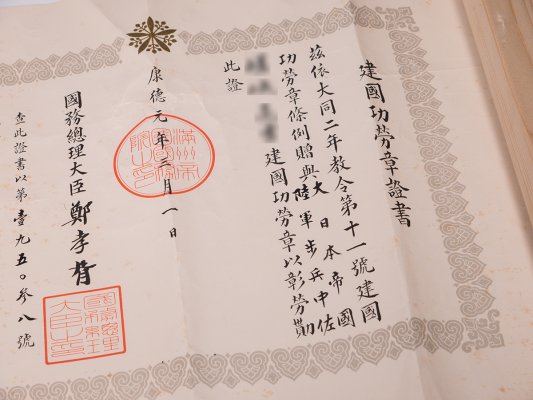 建國功勞章證書
茲依大同二年教令第十一號建國
功勞章條例贈與大日本帝國
陸軍步兵中佐
建國功勞章以彰勞勩
此證
康德元年三月一日
國務總理大臣鄭孝胥
查此證書以第壹九五〇參八號